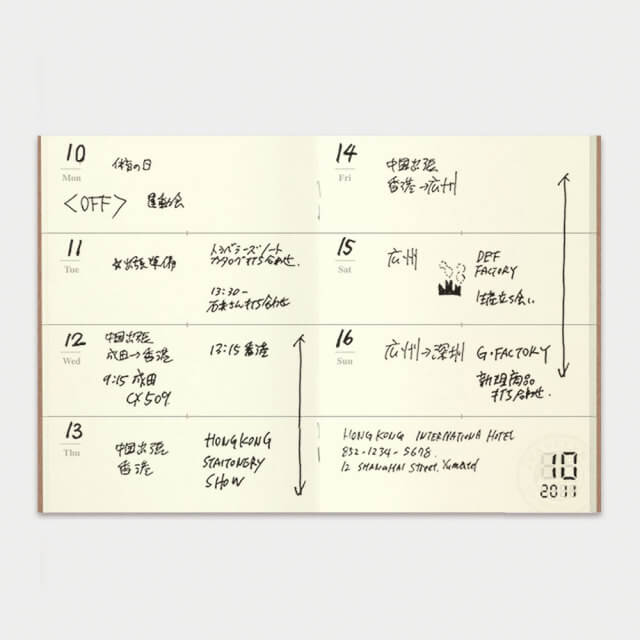 10
Mon
体育の日
<OFF> 運動会
11
Tue
出張準備
トラベラーズノート
カタログ打ち合わせ.
13:30-
打ち合わせ
12
Wed
中国出張
成田→香港
9:15 成田
CX 509.
13:15 香港
13
Thu
中国出張
香港
HONGKONG
STAITONERY
SHOW
14
Fri
中国出張
香港→広州
15
Sat
広州
DEF
FACTORY
16
Sun
広州→深圳
G.FACTORY
新規商品
打ち合わせ.
HONG KONG INTERNATIONA HOTEL
852-1234-5678.
12 SHANGHAI STREET.
10
2011